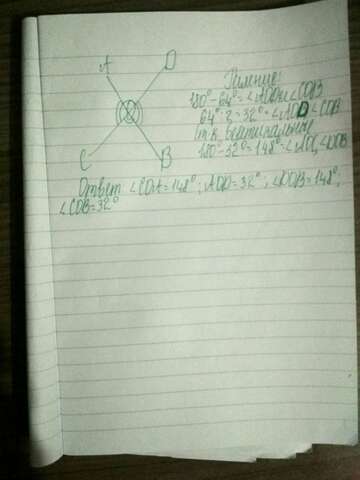 A D
C B
Решение:
180°-64°=∠AOD и ∠COB
64°:2=32°=∠AOD ∠COB
т.к. вертикальные
180°-32°=148°=∠AOC, ∠DOB
Ответ: ∠COA=148°; AOD=32°; ∠DOB=148°;
∠COB=32°